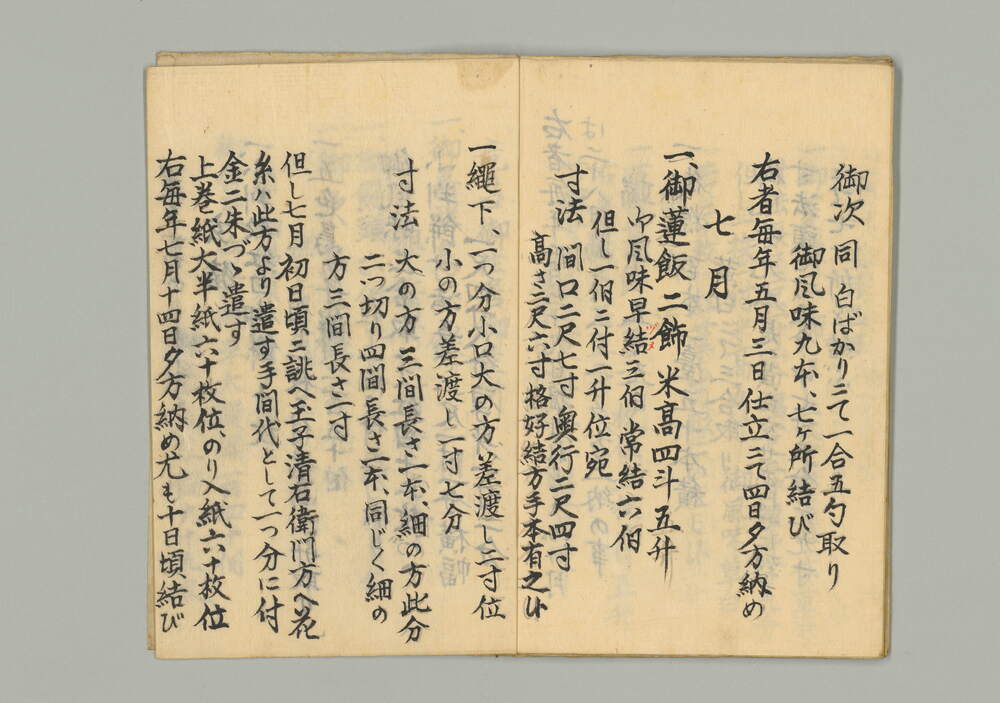 御次 同 白ばかりニて一合五勺取り
御風味九本、七ヶ所結び
右者毎年五月三日仕立ニて四日夕方納め
七月
一、御蓮飯 二飾 米高四斗五升
御風味早結三伯 常結六伯
ツメ
但し一伯ニ付一升位宛
寸法 間口二尺七寸奥行二尺四寸
高さ二尺六寸格好結方手本有之候
一縄下、一つ分小口大の方差渡し二寸位
小の方差渡し一寸七分
寸法 大の方三間長さ一本、細の方此分
二つ切り四間長さ二本、同じく細の
方三間長さ二寸
但し七月初日頃ニ誂へ玉子清右衛門方へ花
糸ハ此方より遣す手間代として一つ分に付
金二朱づゝ遣す
上巻紙大半紙六十枚位、のり入紙六十枚位
右毎年七月十四日夕方納め尤も十日頃結び